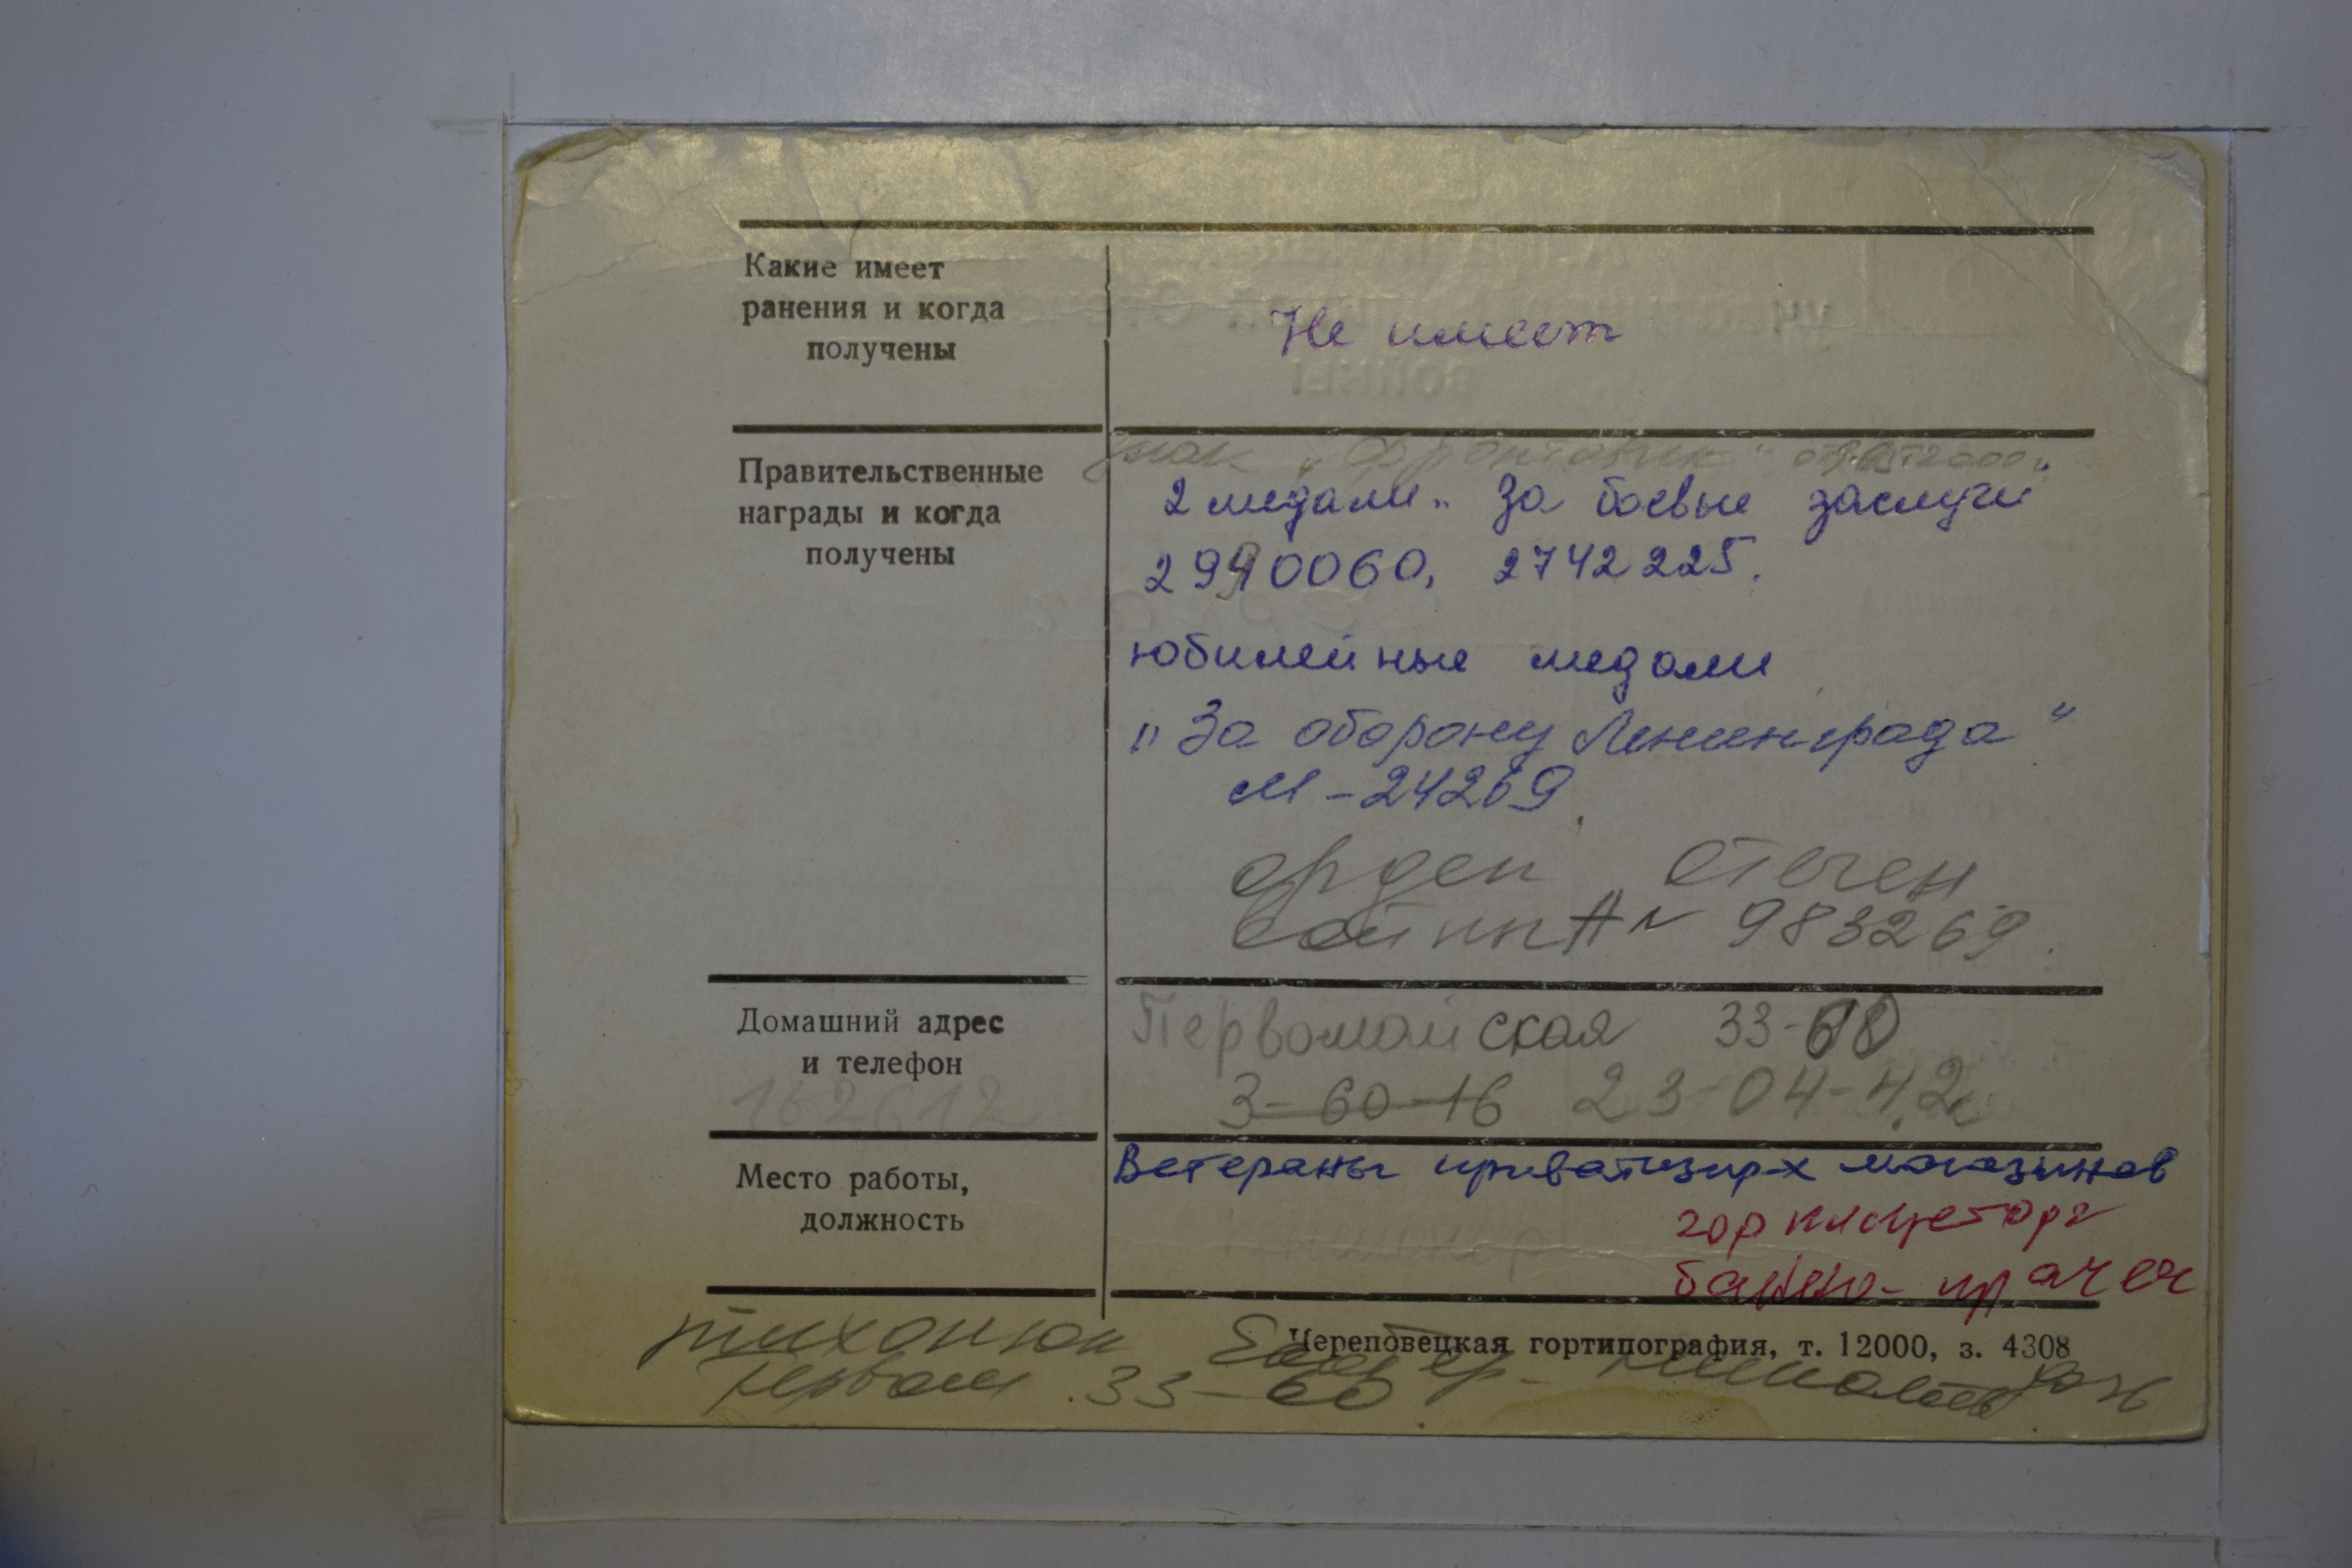 Какие имеет
ранения и когда
получены
Не имеет
Правительственные
награды и когда
получены
знак „Фронтовик"
2 медали „За боевые заслуги"
2990060, 2742225.
юбилейные медали
„За оборону Ленинграда"
М-24269
орден Отечен
войны № 983269.
Домашний адрес
и телефон
162612
Первомайская 33-60
3-60-16 23-04-42
Место работы,
должность
Ветераны приватизир-х магазинов
горпищеторг
банно-прачеч
Череповецкая гортипография, т. 12000, з. 4308
Тихонюк
Первом. 33-60